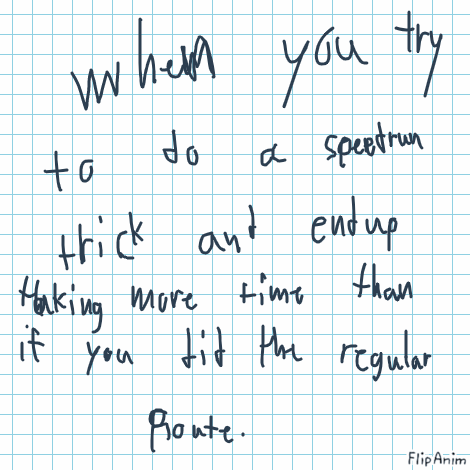 When you try
to do a speedrun
trick and end up
taking more time than
if you did the regular
Route.
FlipAnim